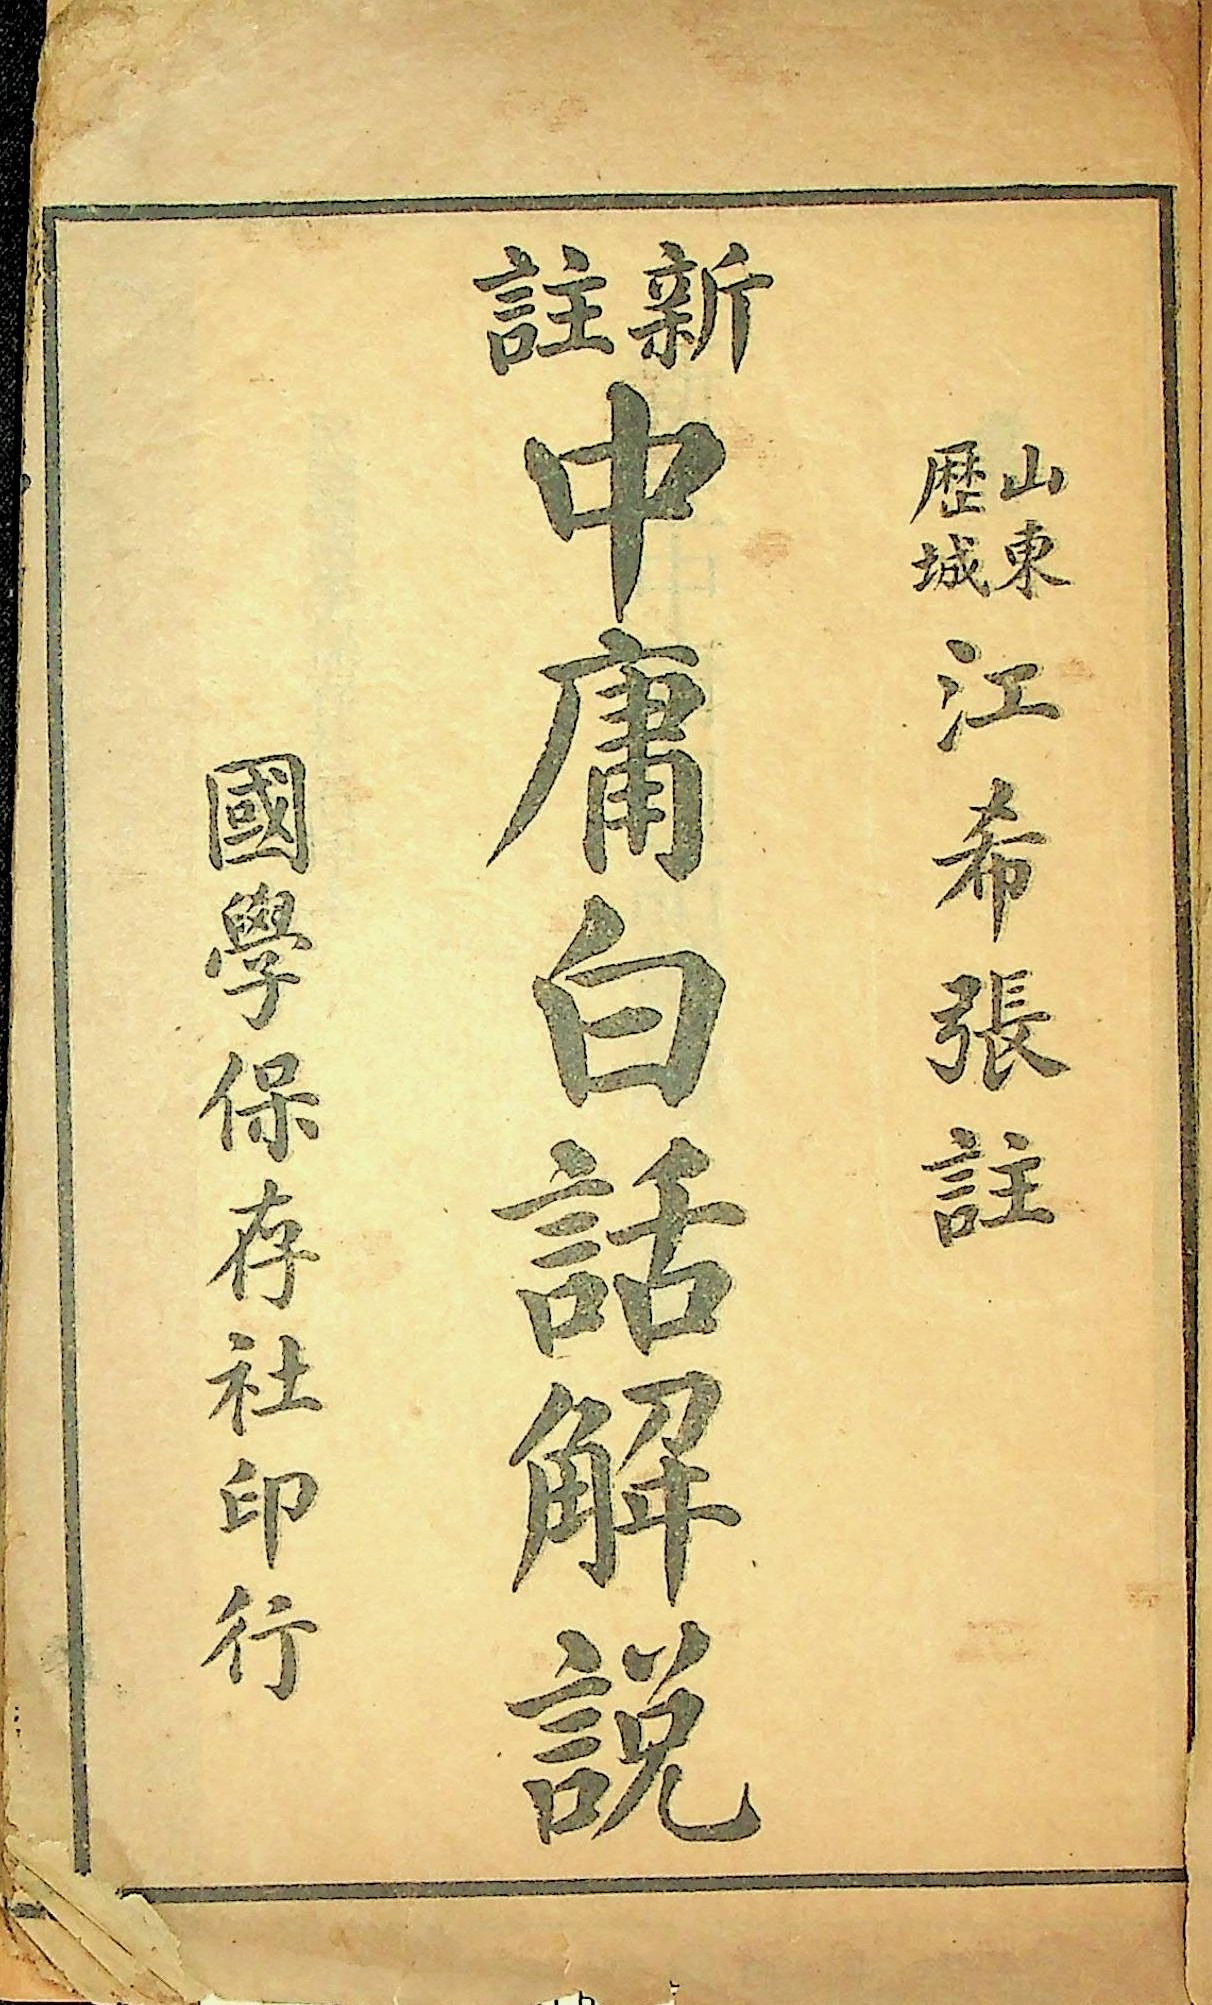 山東歴城 江希張註
新註 中庸白話解說
國學保存社印行